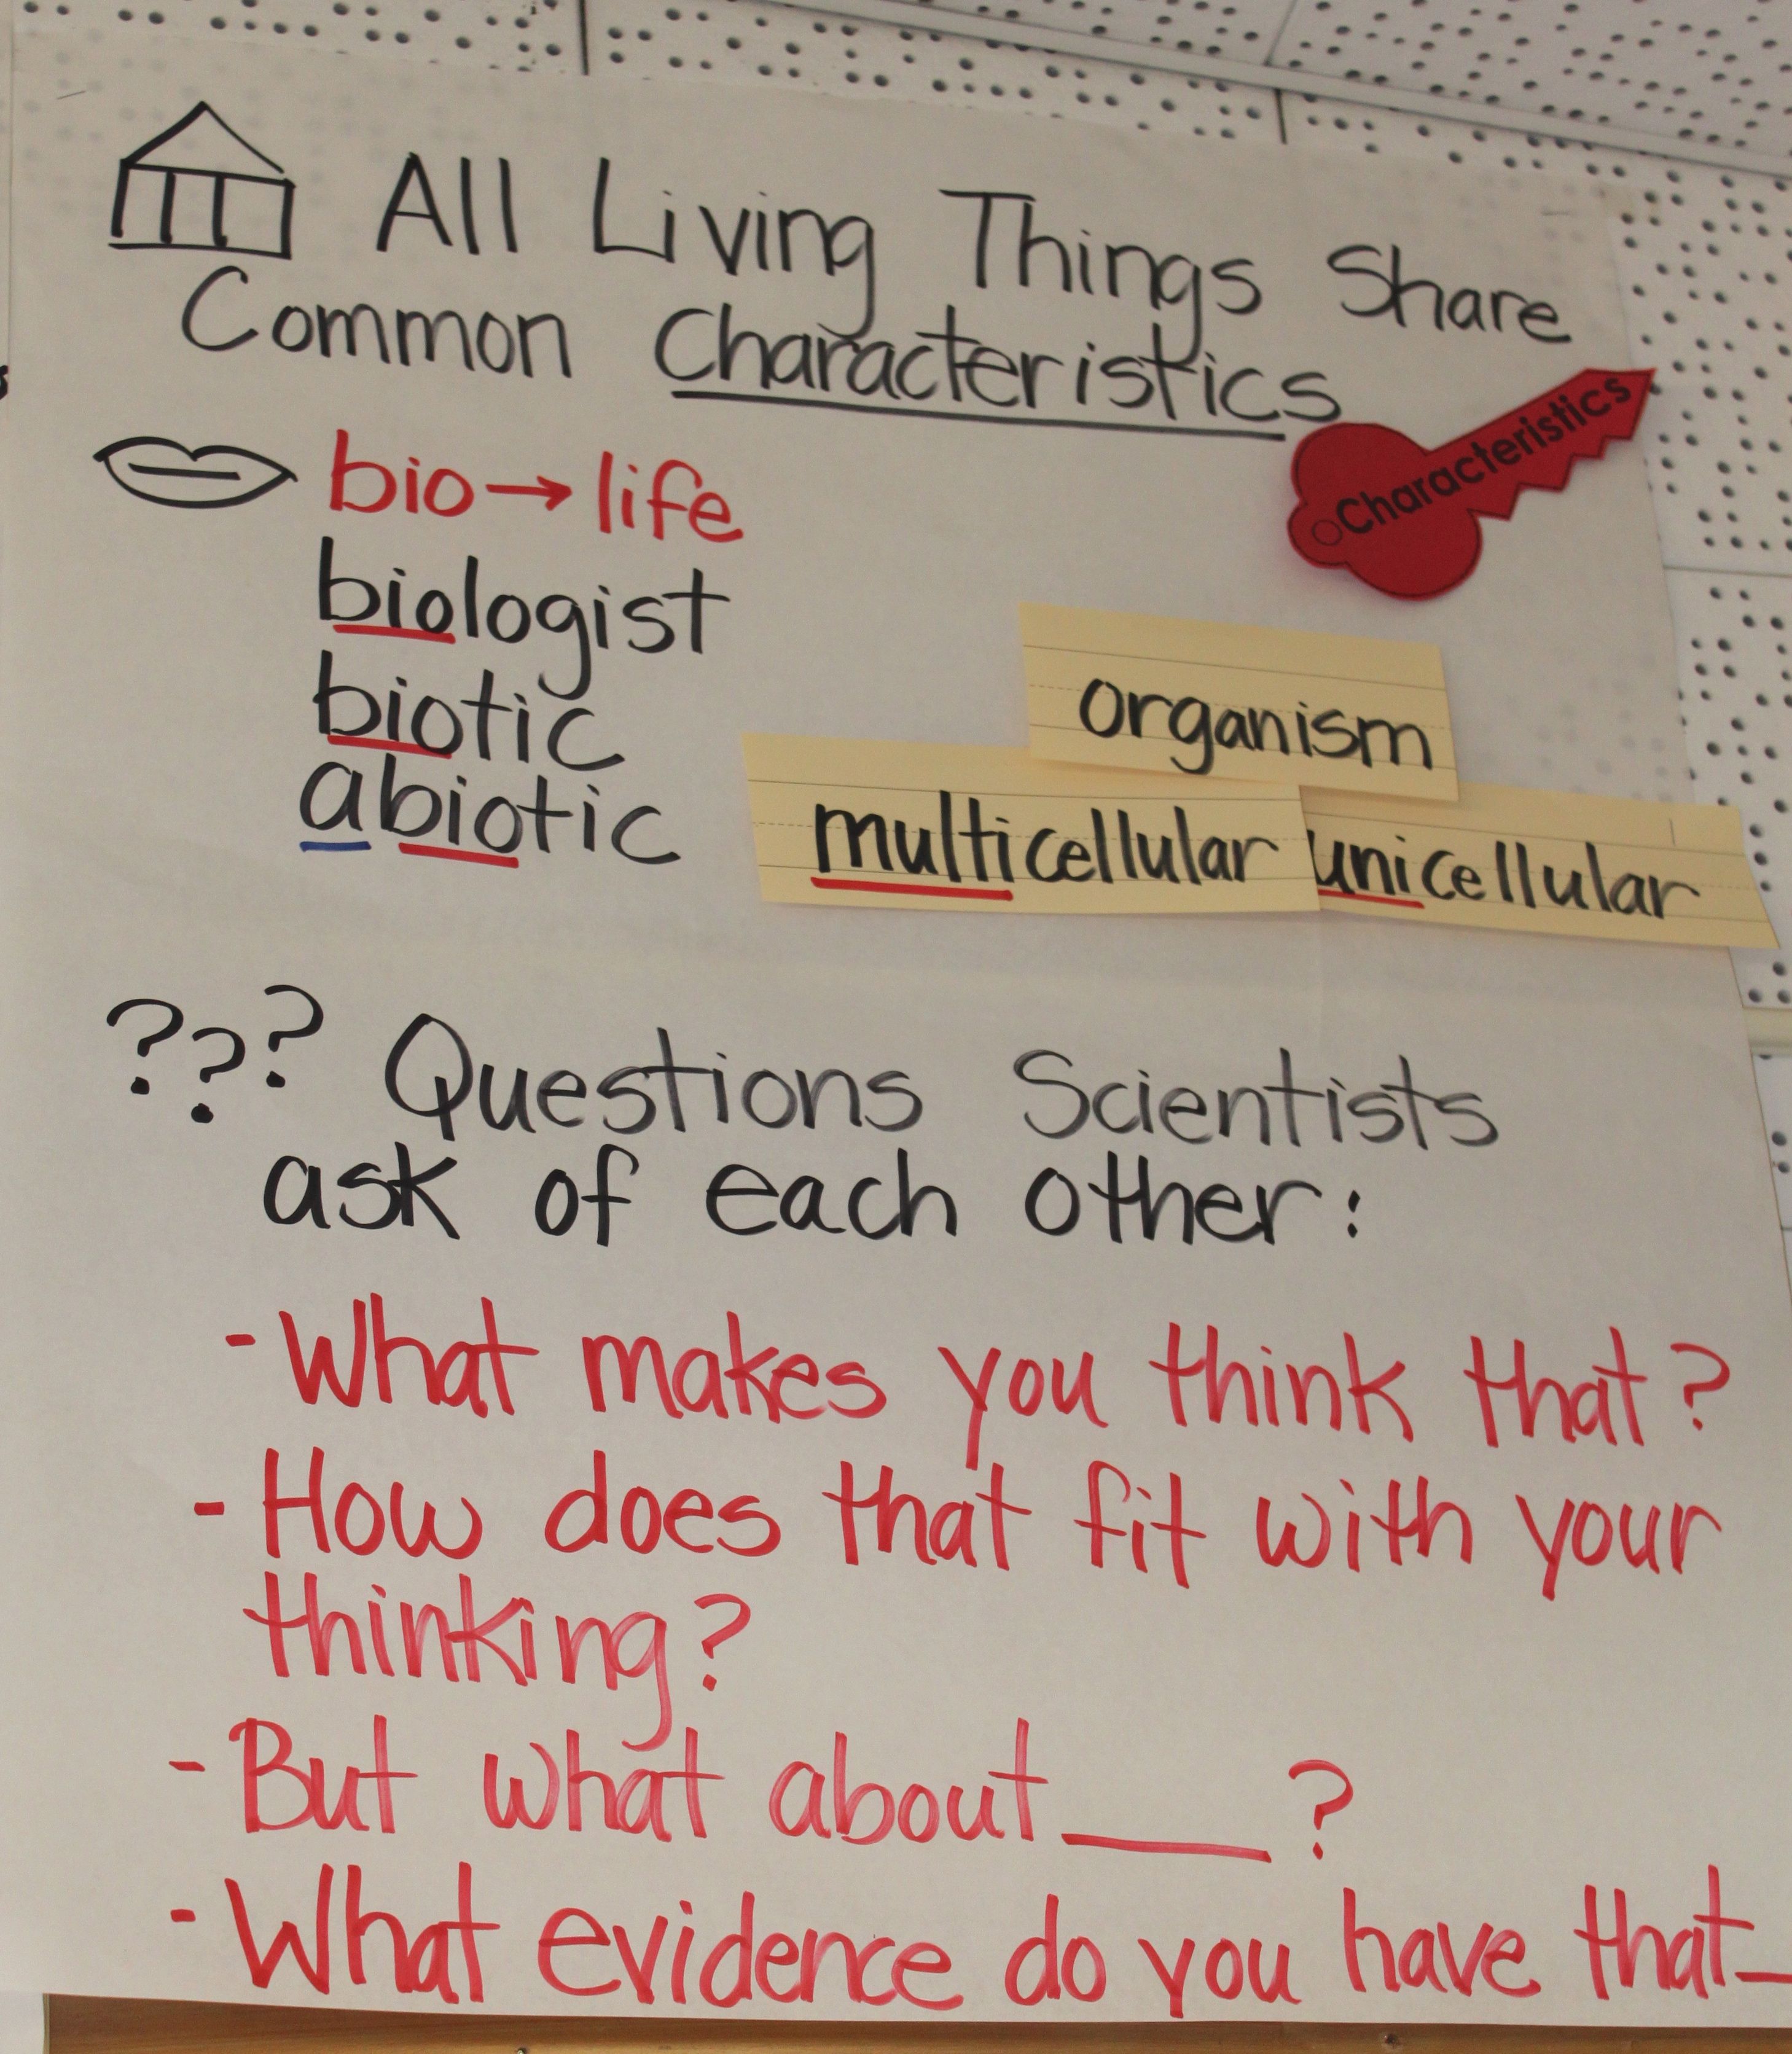 All Living Things Share
Common Characteristics
Characteristics
bio→life
biologist
biotic
abiotic
organism
multicellular unicellular
??? Questions Scientists
ask of each other:
- What makes you think that?
- How does that fit with your
thinking?
- But what about ____?
- What evidence do you have that_